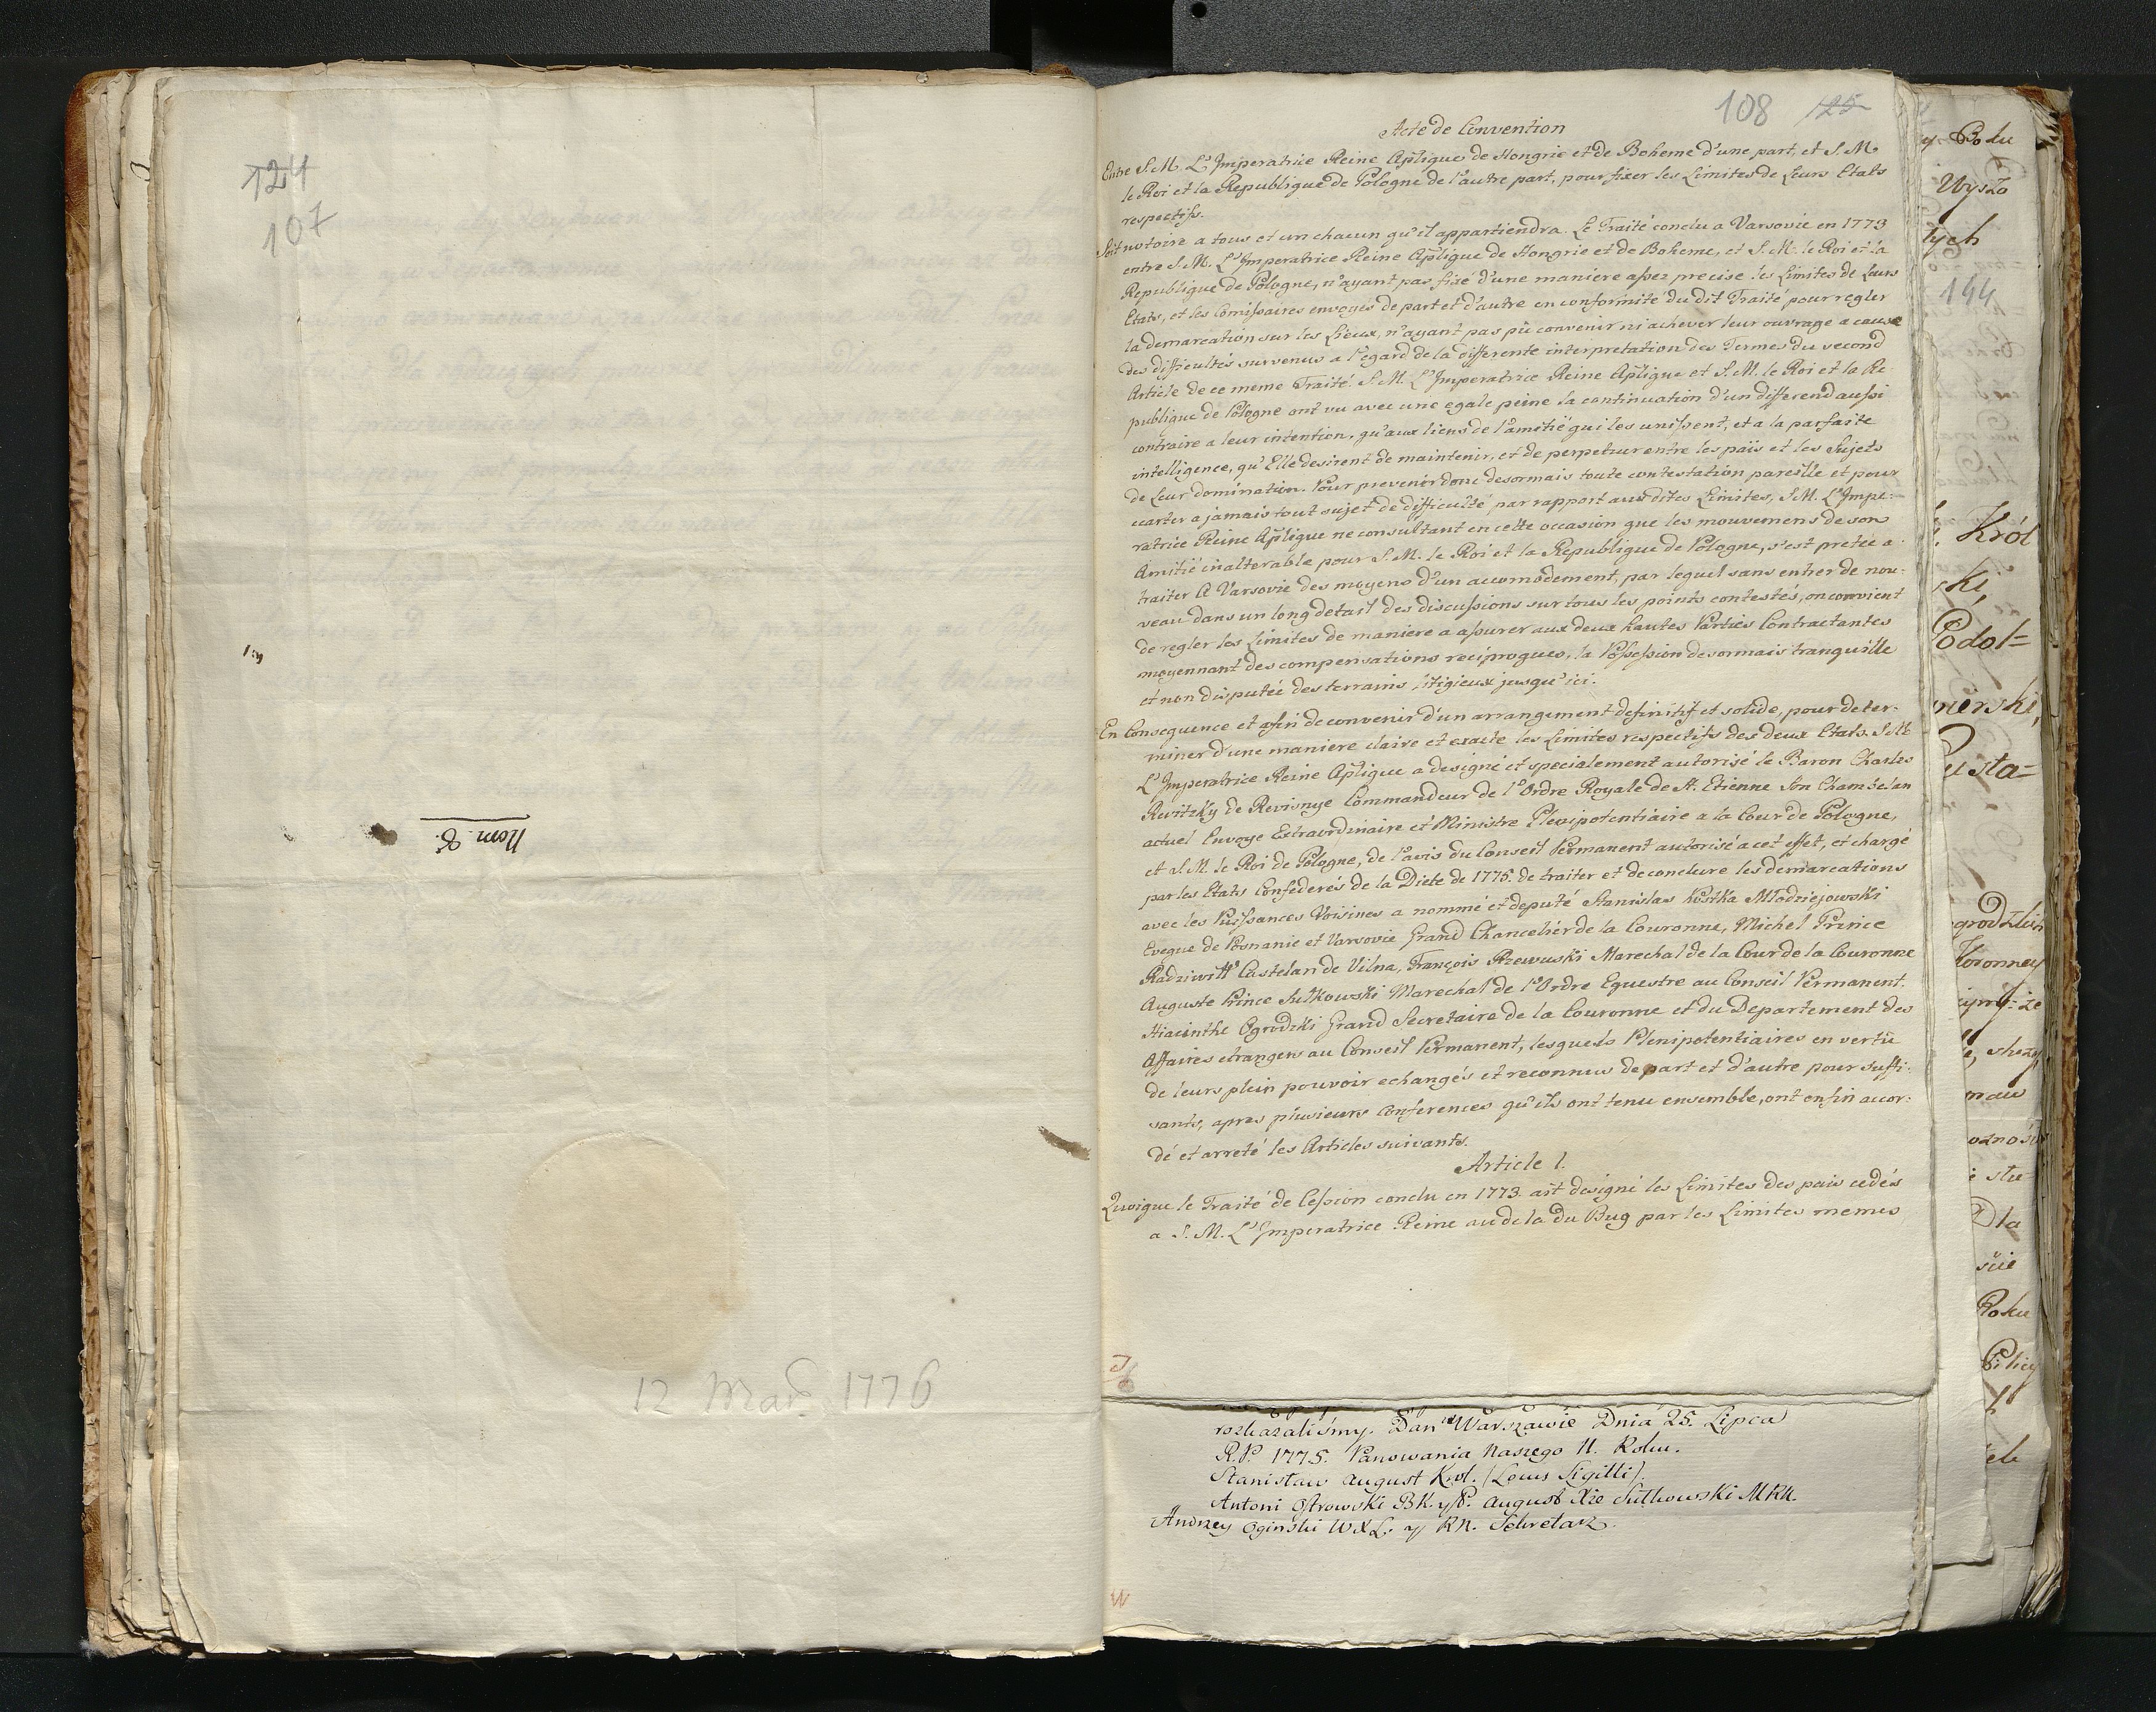 124
107
Nom. 8.
12 Mar. 1776
108 125
Acte de Convention
Entre S.M. L'Imperatrice Reine Aplique de Hongrie et de Boheme d'une part, et S.M.
le Roi et la Republique de Pologne de l'autre part, pour fixer les Limites de Leurs Etats
respectifs.
Soit notoire a tous et un chacun qu'il appartiendra. Le Traité conclu a Varsovie en 1773
entre S.M. L'Imperatrice Reine Aplique de Hongrie et de Boheme, et S.M. le Roi et la
Republique de Pologne, n'ayant pas fixé d'une maniere assez precise les Limites de Leurs
Etats, et les Comissaires envoyes de part et d'autre en conformité du dit Traité pour regler
la demarcation sur les Lieux, n'ayant pas pû convenir ni achever leur ouvrage a cause
des difficultés survenus a l'egard de la differente interpretation des Termes du second
Article de ce meme Traité. S.M. L'Imperatrice Reine Aplique et S.M. le Roi et la Re-
publique de Pologne ont vu avec une egale peine la continuation d'un differend aussi
contraire a leur intention, qu'aux liens de l'amitié qui les unissent, et a la parfaite
intelligence, qu'Elle desirent de maintenir, et de perpetuer entre les païs et les Sujets
de Leur domination. Pour prevenir donc desormais toute contestation pareille et pour
ecarter a jamais tout sujet de difficulté par rapport aux dites Limites, S.M. L'Impe-
ratrice Reine Aplique ne consultant en cette occasion que les mouvemens de son
Amitié inalterable pour S.M. le Roi et la Republique de Pologne, s'est pretée a
traiter A Varsovie des moyens d'un accomodement, par lequel sans entrer de nou-
veau dans un long detail des discussions sur tous les points contestés, on convient
de regler les Limites de maniere a assurer aux deux hautes Parties Contractantes
moyennant des compensations reciproques, la Possession desormais tranquille
et non disputée des terrains litigieux jusqu'ici.
En Consequence et afin de convenir d'un arrangement definitif et solide, pour deter-
miner d'une maniere claire et exacte les Limites respectifs des deux Etats. S.M.
L'Imperatrice Reine Aplique a designé et specialement autorisé le Baron Charles
Revitzky de Revisnye Commandeur de l'Ordre Royale de St. Etienne Son Chambelan
actuel Envoye Extraordinaire et Ministre Plenipotentiaire a la Cour de Pologne,
et S.M. le Roi de Pologne, de l'avis du Conseil Permanent autorisé a cet effet, et chargé
par les Etats Confederés de la Diete de 1775. de traiter et de conclure les demarcations
avec les Puissances Voisines a nommé et deputé Stanislas Kostka Młodziejowski
Eveque de Posnanie et Varsovie Grand Chancelier de la Couronne, Michel Prince
Radziwiłł Castelan de Vilna, François Rzewuski Marechal de la Cour de la Couronne
Auguste Prince Sułkowski Marechal de l'Ordre Equestre au Conseil Permanent.
Hiacinthe Ogrodzki Grand Secretaire de la Couronne et du Departement des
Affaires etrangers au Conseil Permanent, lesquels Plenipotentiaires en vertû
de leurs plein pouvoir echangés et reconnus de part et d'autre pour suffi-
sants, apres plusieurs Conferences qu'ils ont tenu ensemble, ont enfin accor-
dé et arreté les Articles suivants.
Article I.
Quoique le Traité de Cession conclu en 1773. ait designé les Limites des pais cedés
a S.M. L'Imperatrice Reine au dela du Bug par les Limites memes
rozkazaliśmy. Dan w Warszawie Dnia 25. Lipca
R.P. 1775. Panowania Naszego 11. Roku.
Stanisław August Krol. (Locus Sigilli).
Antoni Ostrowski BK. y P. August Xże Sułkowski MRN.
Andrzey Oginski WXL. y RN. Sekretarz.
y Boku
Wyszo
tych
144
Król
ski,
Podol=
mierski,
Usta=
Koronney
Dla
Roku